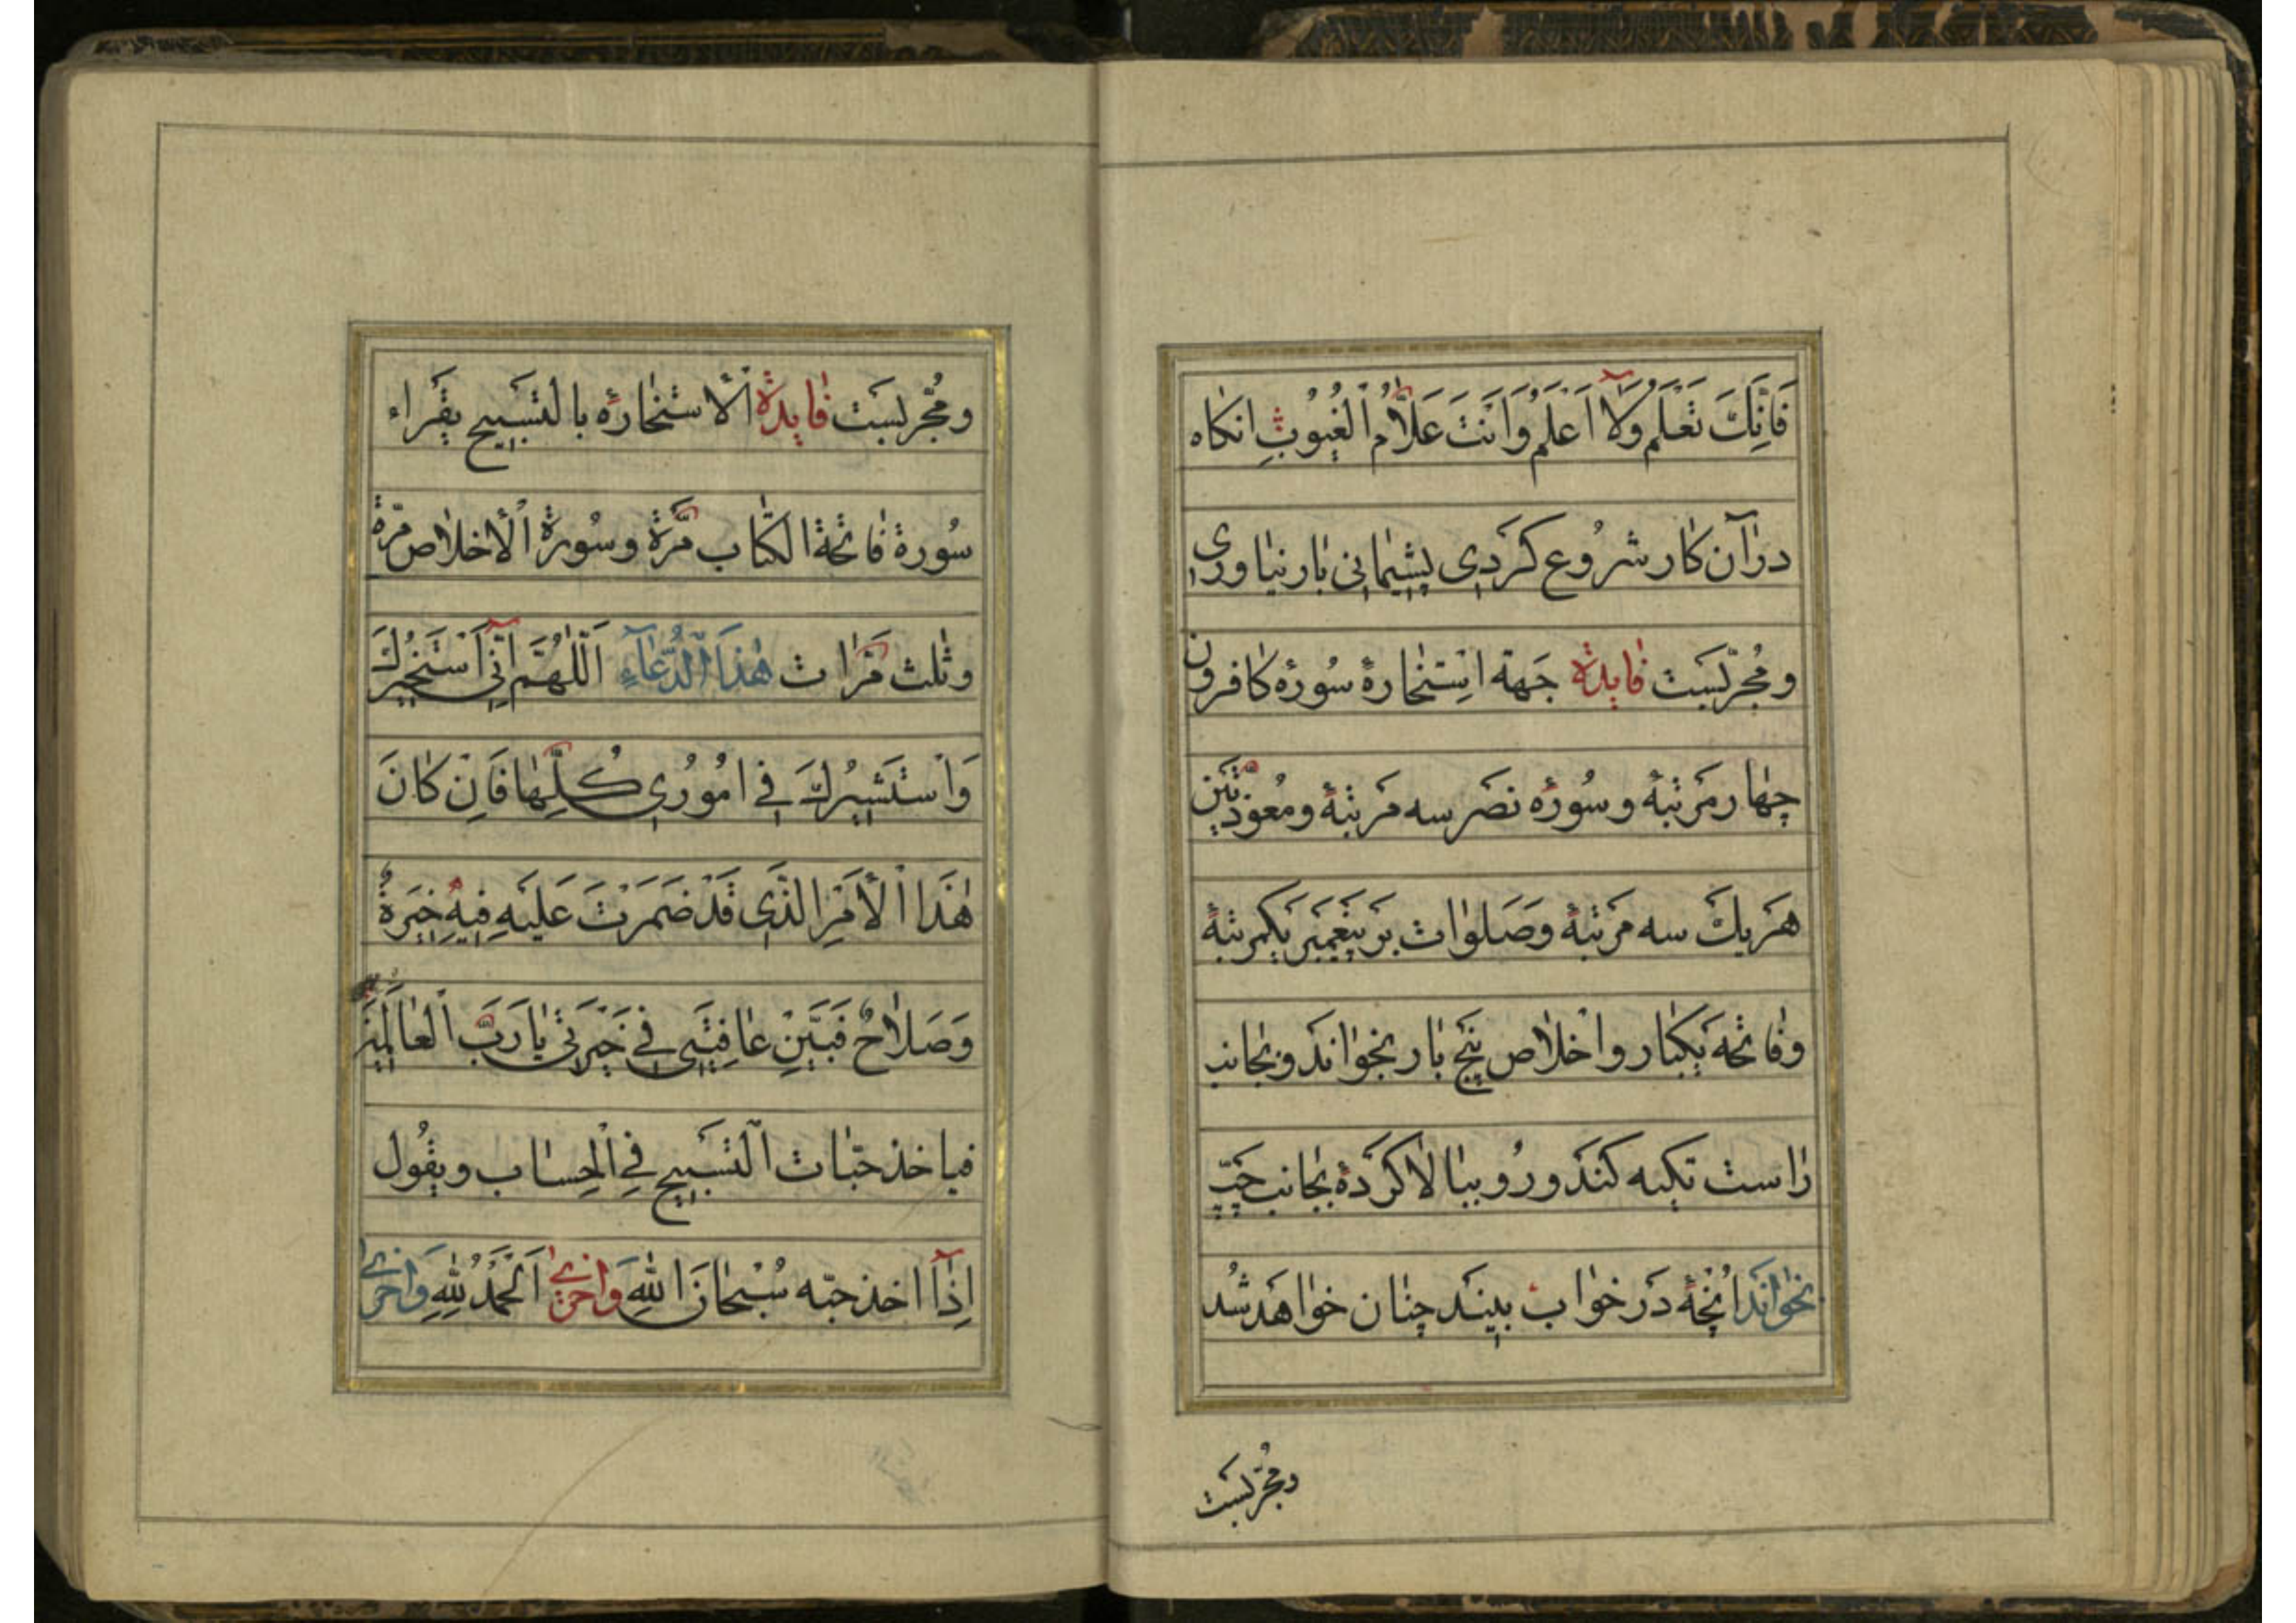 فَاِنَّكَ تَعْلَمُ وَلَا اَعْلَمُ وَاَنْتَ عَلَّامُ الْغُيُوبِ انكاه
درآن كار شروع كردى پشيمانى بار نياورى
ومُجرّبست فايدة جَهة استخارة سُورهٔ كافرون
چهار مرتبهٔ وسُورهٔ نصر سه مرتبهٔ ومُعوّذتين
هريك سه مرتبهٔ وصَلوات بر پيغمبر يكمرتبهٔ
وفاتحه يكبار واخلاص پنج بار بخواند وبجانب
راست تكيه كند ورُو ببالا كردهٔ بجانب چپ
بخواند انچهٔ در خواب بيند چنان خواهد شد
ومُجرّبست
ومُجرّبست فايدة الاستخاره بالتسبيح يقراء
سُورة فاتحة الكتاب مرّة وسُورة الاخلاص مرّة
وثلث مرّات هٰذا الدُّعآءِ اَللّٰهُمَّ اِنّى اَسْتَخيرُكَ
وَاَسْتَشيرُكَ فى اُمُورى كُلِّها فَاِنْ كانَ
هٰذَا الْاَمْرِ الَّذى قَدْ ضَمَرْتَ عَلَيْهِ فيهِ خِيَرَةٌ
وَصَلاحٌ فَبَيِّنِ عافِيَتى فى خِيَرَتى يا رَبَّ الْعالَمينَ
فياخذ حبّات التسبيح فى الحساب ويقُول
اِذآ اخذ حبّه سُبْحانَ اللهِ وَاُخرىٰ اَلْحَمْدُ لِلهِ وَاُخرىٰ